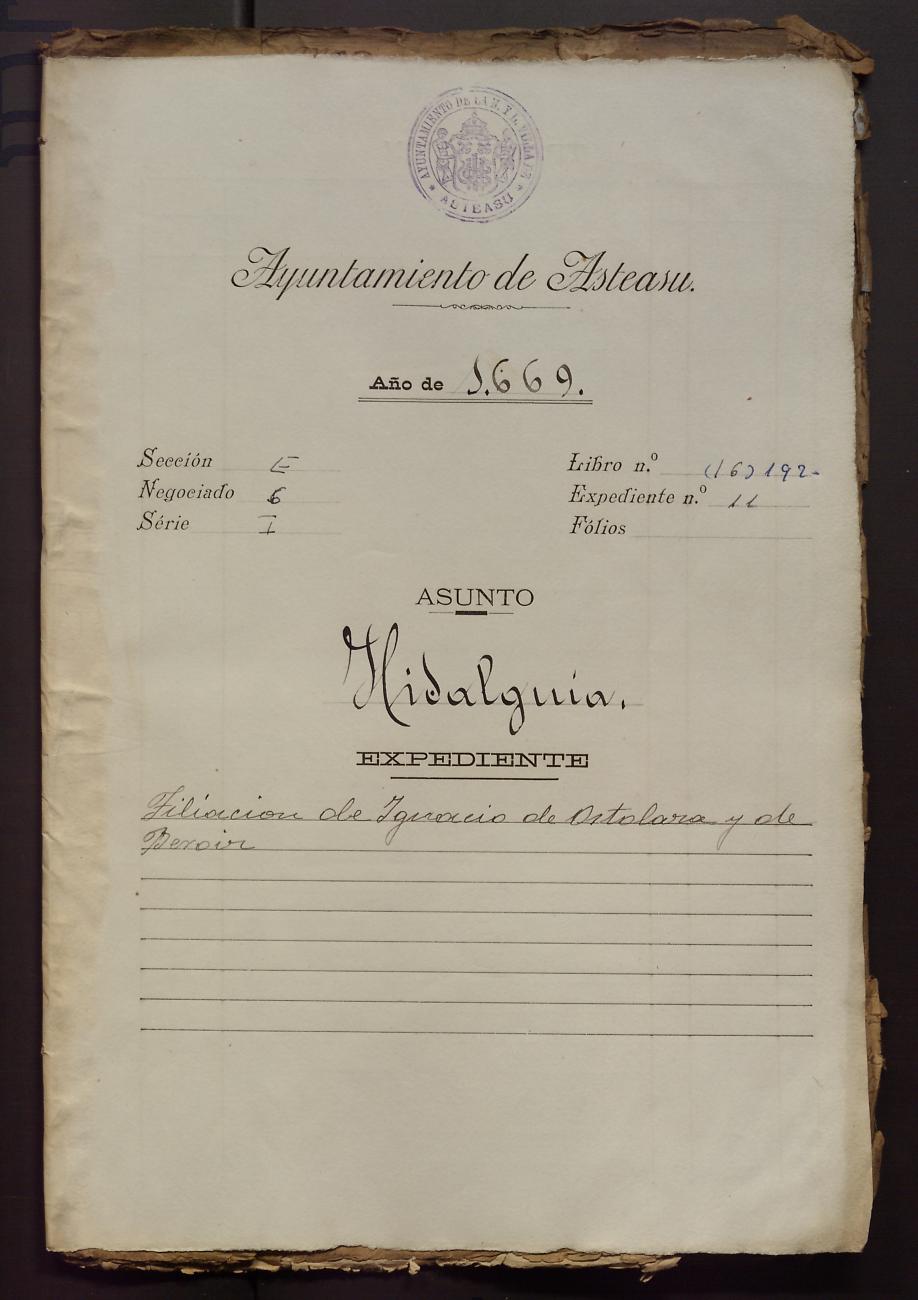 AYUNTAMIENTO DE LA N. Y L. VILLA DE
* ASTEASU *
Ayuntamiento de Asteasu.
Año de 1.669.
Sección E
Negociado 6
Série I
Libro n.º (16) 192-
Expediente n.º 11
Fólios
ASUNTO
Hidalguia.
EXPEDIENTE
Filiacion de Ignacio de Ostolara y de